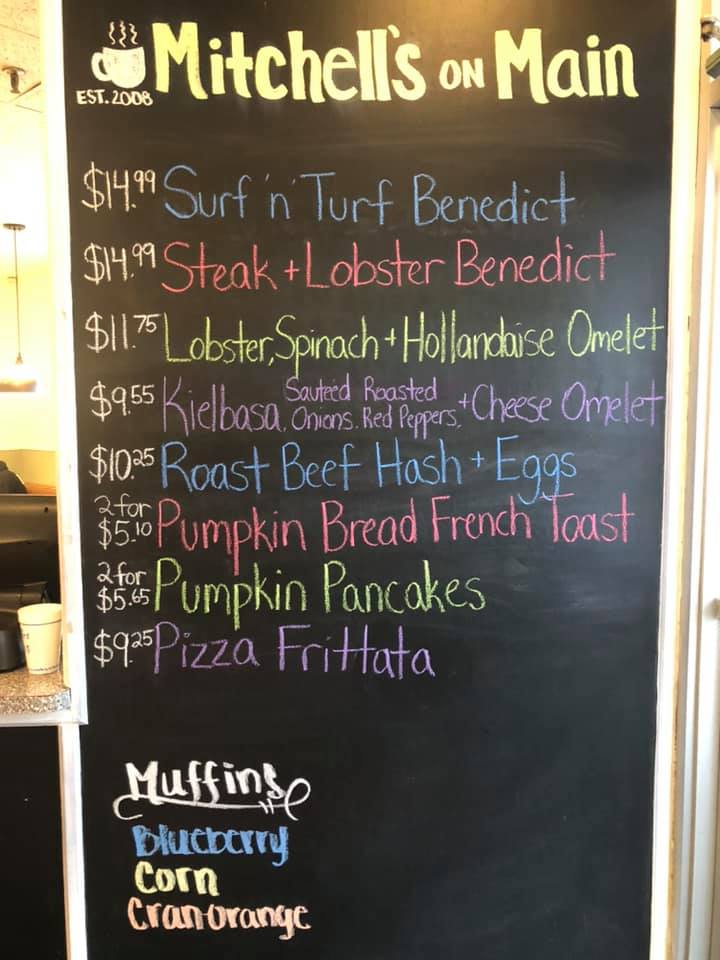 Mitchell's ON Main
EST. 2008
$14.99 Surf 'n' Turf Benedict
$14.99 Steak + Lobster Benedict
$11.75 Lobster, Spinach + Hollandaise Omelet
$9.55 Kielbasa, Sauteéd Onions, Roasted Red Peppers, + Cheese Omelet
$10.25 Roast Beef Hash + Eggs
2 for $5.10 Pumpkin Bread French Toast
2 for $5.65 Pumpkin Pancakes
$9.25 Pizza Frittata
Muffins
Blueberry
Corn
Cran-orange